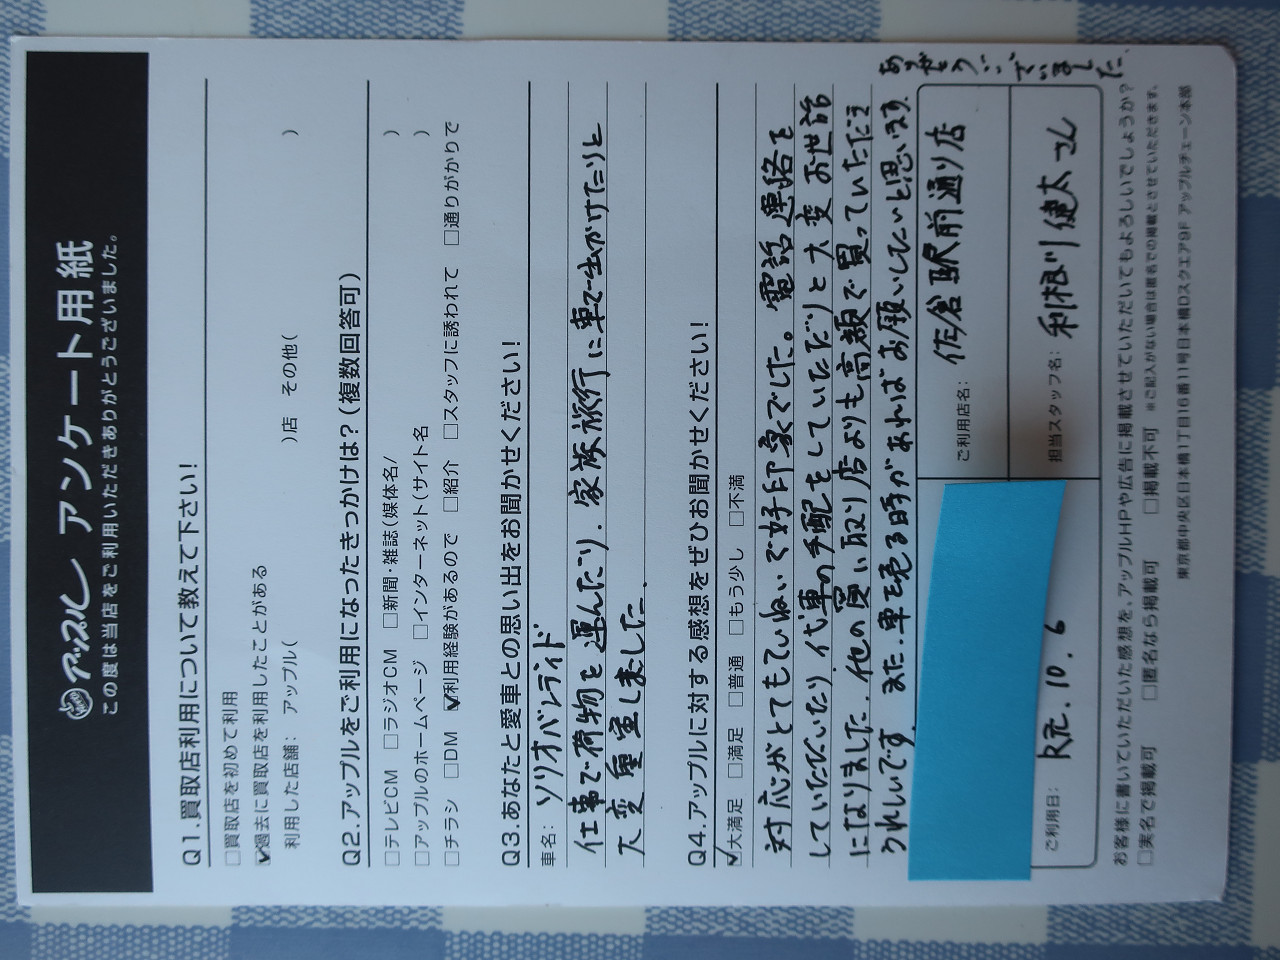 アップル アンケート用紙
この度は当店をご利用いただきありがとうございました。
Q1.買取店利用について教えて下さい!
□買取店を初めて利用
☑過去に買取店を利用したことがある
利用した店舗: アップル( )店 その他( )
Q2.アップルをご利用になったきっかけは?(複数回答可)
□テレビCM □ラジオCM □新聞・雑誌(媒体名/ )
□アップルのホームページ □インターネット(サイト名 )
□チラシ □DM ☑利用経験があるので □紹介 □スタッフに誘われて □通りがかりで
Q3.あなたと愛車との思い出をお聞かせください!
車名: ソリオバンディド
仕事で荷物を運んだり、家族旅行に車で出かけたりと
大変重宝しました。
Q4.アップルに対する感想をぜひお聞かせください!
☑大満足 □満足 □普通 □もう少し □不満
対応がとてもていねいで好印象でした。電話連絡を
していただいたり、代車の手配をしていただりと大変お世話
になりました。他の買い取り店よりも高額で買っていただき
うれしいです。また、車を売る時があればお願いしたいと思います。
ありがとうございました。
ご利用店名: 佐倉駅前通り店
ご利用日: R元.10.6
担当スタッフ名: 利根川健太さん
お客様に書いていただいた感想を、アップルHPや広告に掲載させていただいてもよろしいでしょうか?
□実名で掲載可 □匿名なら掲載可 □掲載不可 ※ご記入がない場合は匿名での掲載とさせていただきます。
東京都中央区日本橋1丁目16番11号日本橋Dスクエア9F アップルチェーン本部